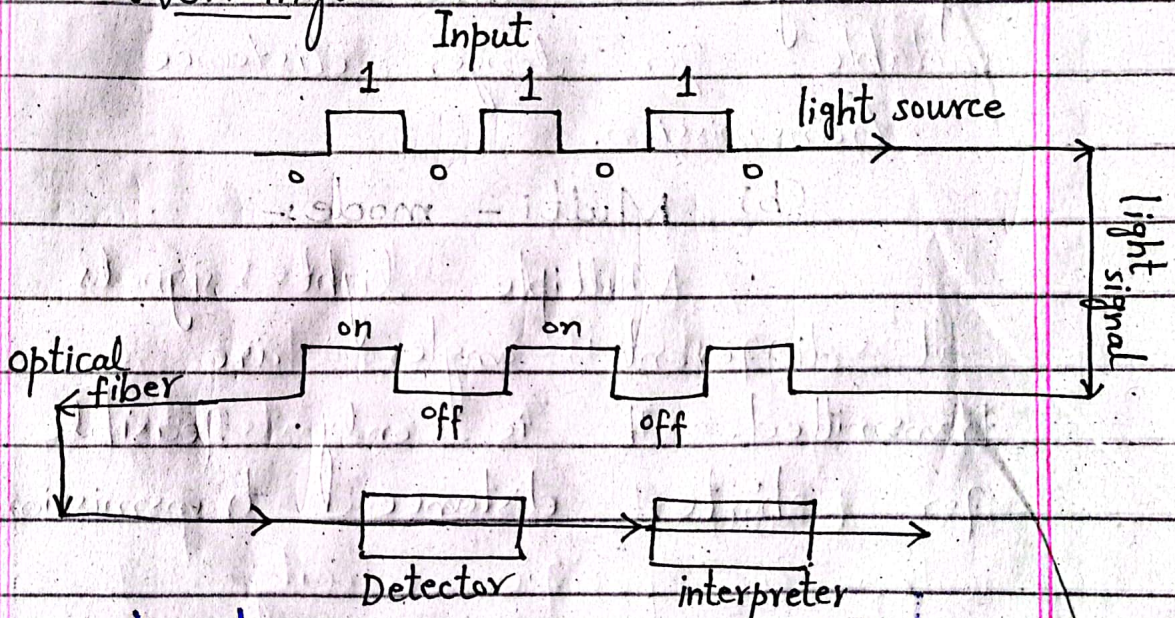 Input
1 1 1
light source
0 0 0 0
light signal
on on
optical fiber
off off
Detector interpreter